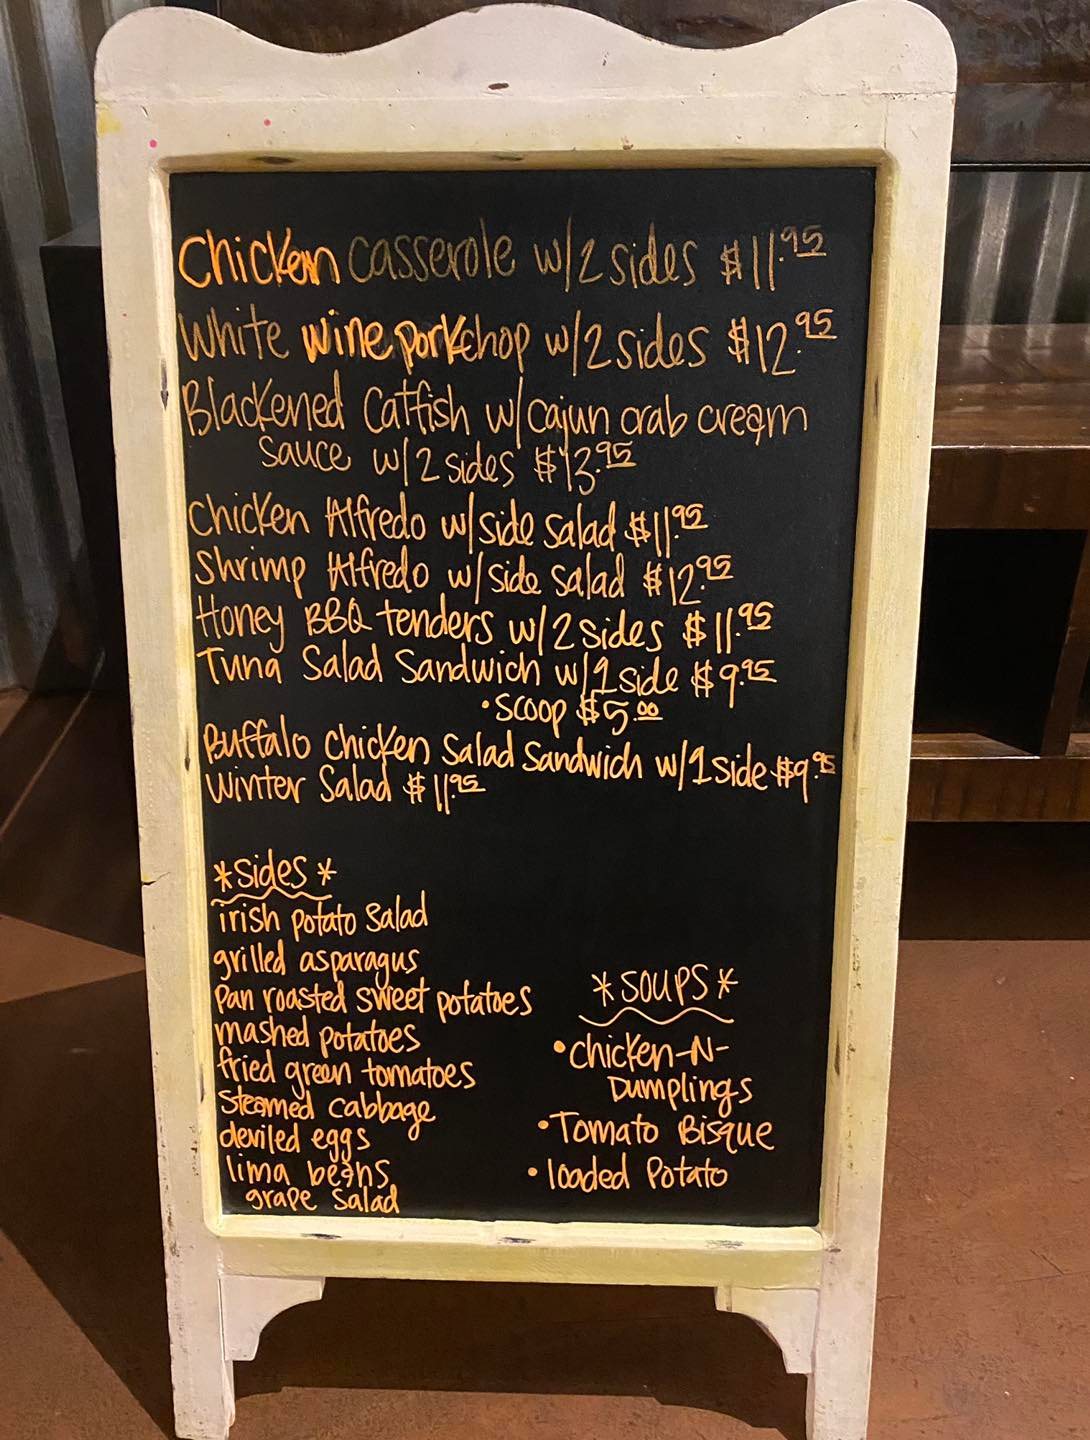 Chicken casserole w/2 sides $11.95
White wine porkchop w/2 sides $12.95
Blackened Catfish w/cajun crab cream
sauce w/2 sides $13.95
Chicken Alfredo w/side salad $11.95
Shrimp Alfredo w/side salad $12.95
Honey BBQ tenders w/2 sides $11.95
Tuna Salad Sandwich w/1 side $9.95
•Scoop $5.00
Buffalo Chicken Salad Sandwich w/1 side $9.95
Winter Salad $11.95
*Sides*
irish potato Salad
grilled asparagus
pan roasted sweet potatoes
mashed potatoes
fried green tomatoes
steamed cabbage
deviled eggs
lima beans
grape Salad
*SOUPS*
•Chicken-N-
Dumplings
•Tomato Bisque
•loaded Potato